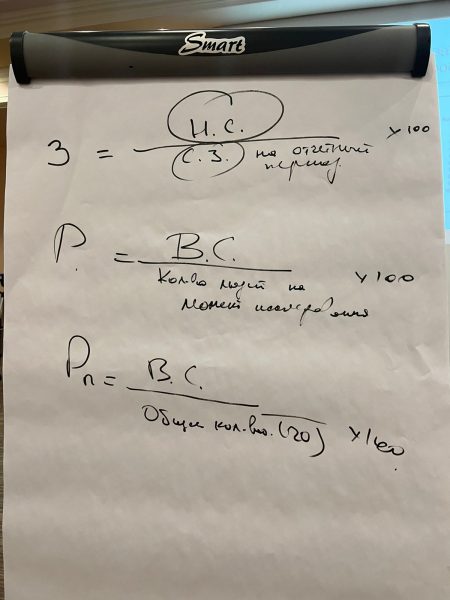 Smart
З = Н.С.
С.З. на отчетный х100
период
P. = В.С.
Кол-во людей на х100
момент исследования
Pп = В.С.
Общее кол-во. (20) х100